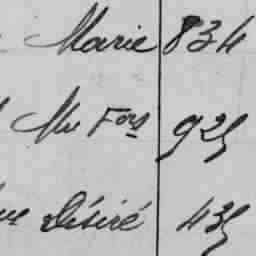 Marie 834
Mie Fois 925
Désiré 435